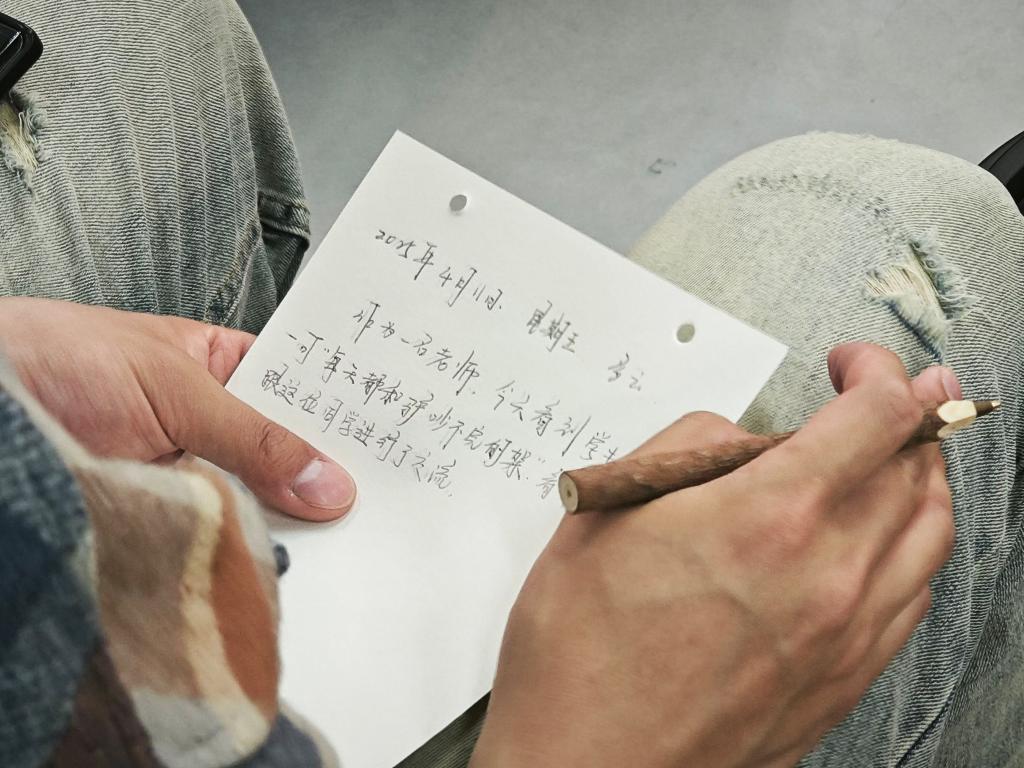 2025年4月11日. 星期五 多云
作为一名老师. 今天看到学生
一句"每天都和爸吵不完的架".看
跟这位同学进行了交流.